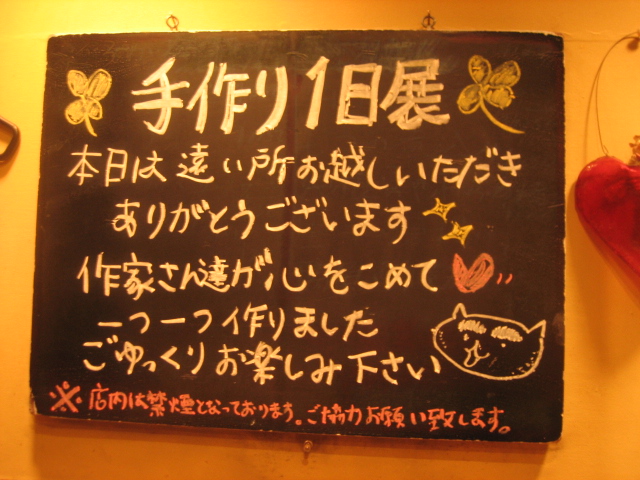 手作り1日展
本日は遠い所お越しいただき
ありがとうございます
作家さん達が心をこめて
一つ一つ作りました
ごゆっくりお楽しみ下さい
※店内は禁煙となっております。ご協力お願い致します。